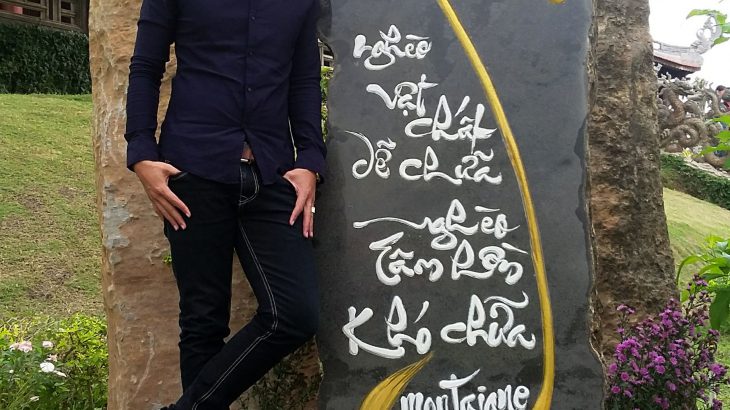 nghèo
vật
chất
dễ chữa
nghèo
tâm hồn
Khó chữa
montaigne